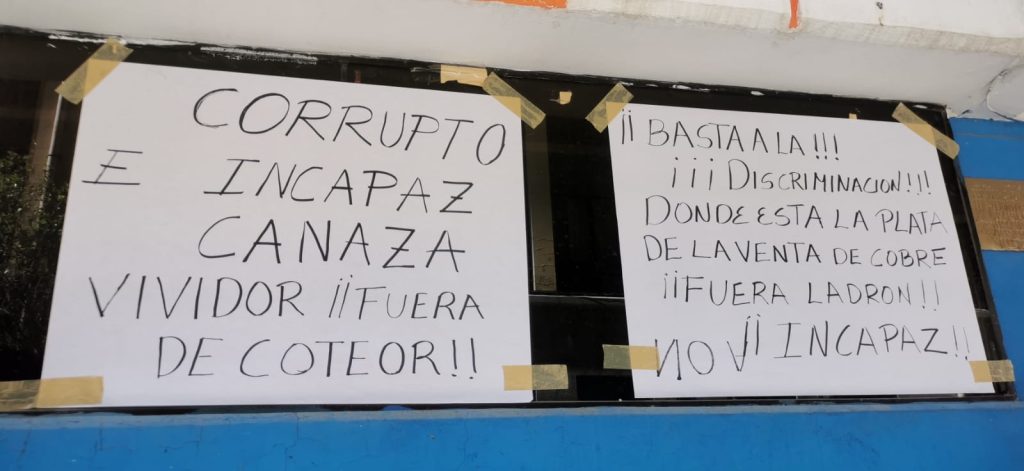 CORRUPTO
E INCAPAZ
CANAZA
VIVIDOR ¡¡FUERA
DE COTEOR!!
¡¡ BASTA A LA !!!
¡¡¡DISCRIMINACION!!!
DONDE ESTA LA PLATA
DE LA VENTA DE COBRE
¡¡FUERA LADRON!!
¡¡ INCAPAZ!!